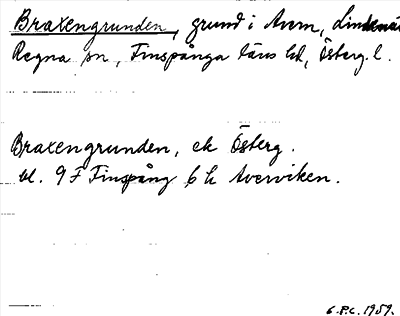 Braxengrunden, grund i Avern,
Regna sn, Finspånga läns hd, Österg. l.
Braxengrunden, ek Österg.
bl. 9 F Finspång 6 h Averviken.
G.P.C. 1959.